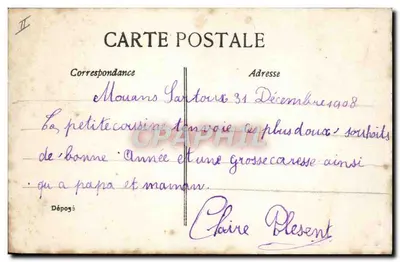 II
CARTE POSTALE
Correspondance Adresse
Mouans Sartoux 31 Décembre 1908
Ta petite cousine t'envoie ses plus doux souhaits
de bonne Année et une grosse caresse ainsi
qu a papa et maman.
Déposé
Claire Plesent